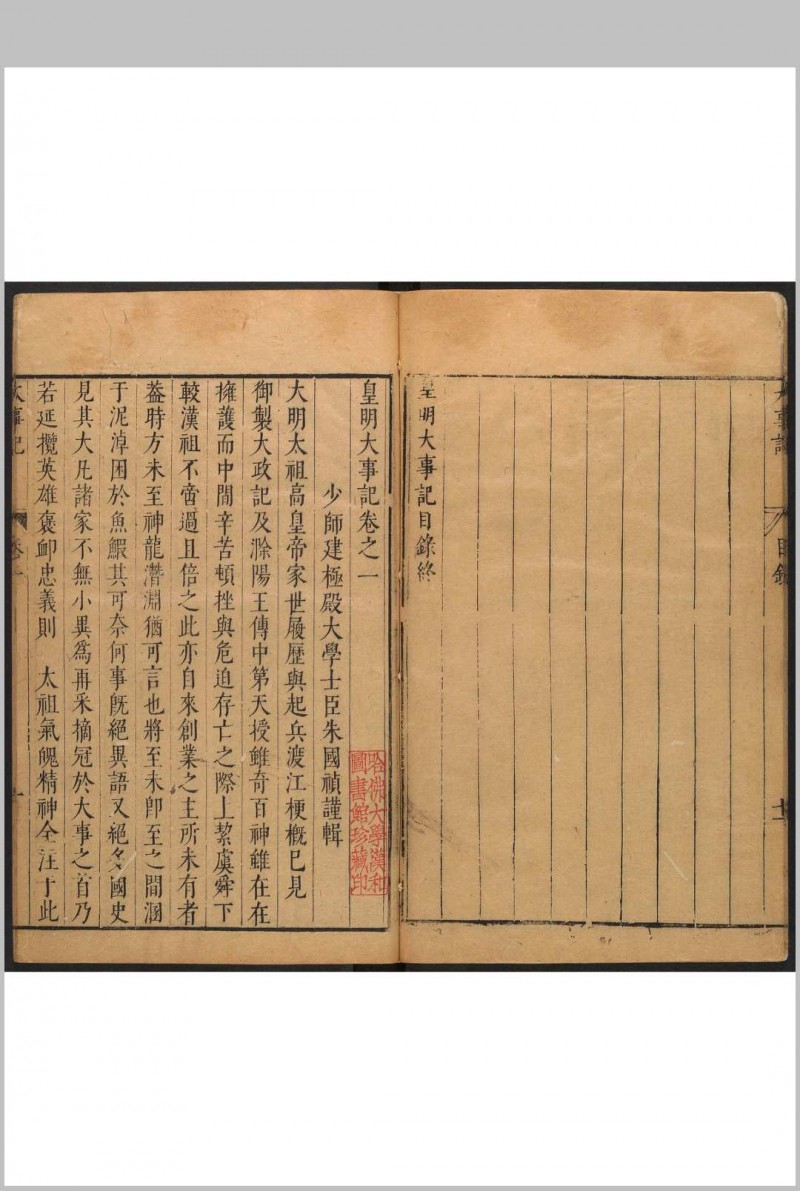 大事記
目錄
十二
皇明大事記目錄終
皇明大事記卷之一
少師建極殿大學士臣朱國禎謹輯
大明太祖高皇帝家世履歷與起兵渡江梗概已見
御製大政記及滁陽王傳中第天授雖奇百神雖在在
擁護而中間辛苦頓挫與危迫存亡之際上絜虞舜下
較漢祖不啻過且倍之此亦自來創業之主所未有者
葢時方未至神龍潛淵猶可言也將至未卽至之間溷
于泥淖困於魚鰕其可奈何事旣絕異語又絕多國史
見其大凡諸家不無小異爲再采摘冠於大事之首乃
若延攬英雄褒卹忠義則　太祖氣魄精神全注于此
大事記
卷一
一
哈佛大學漢和
圖書館珍藏印